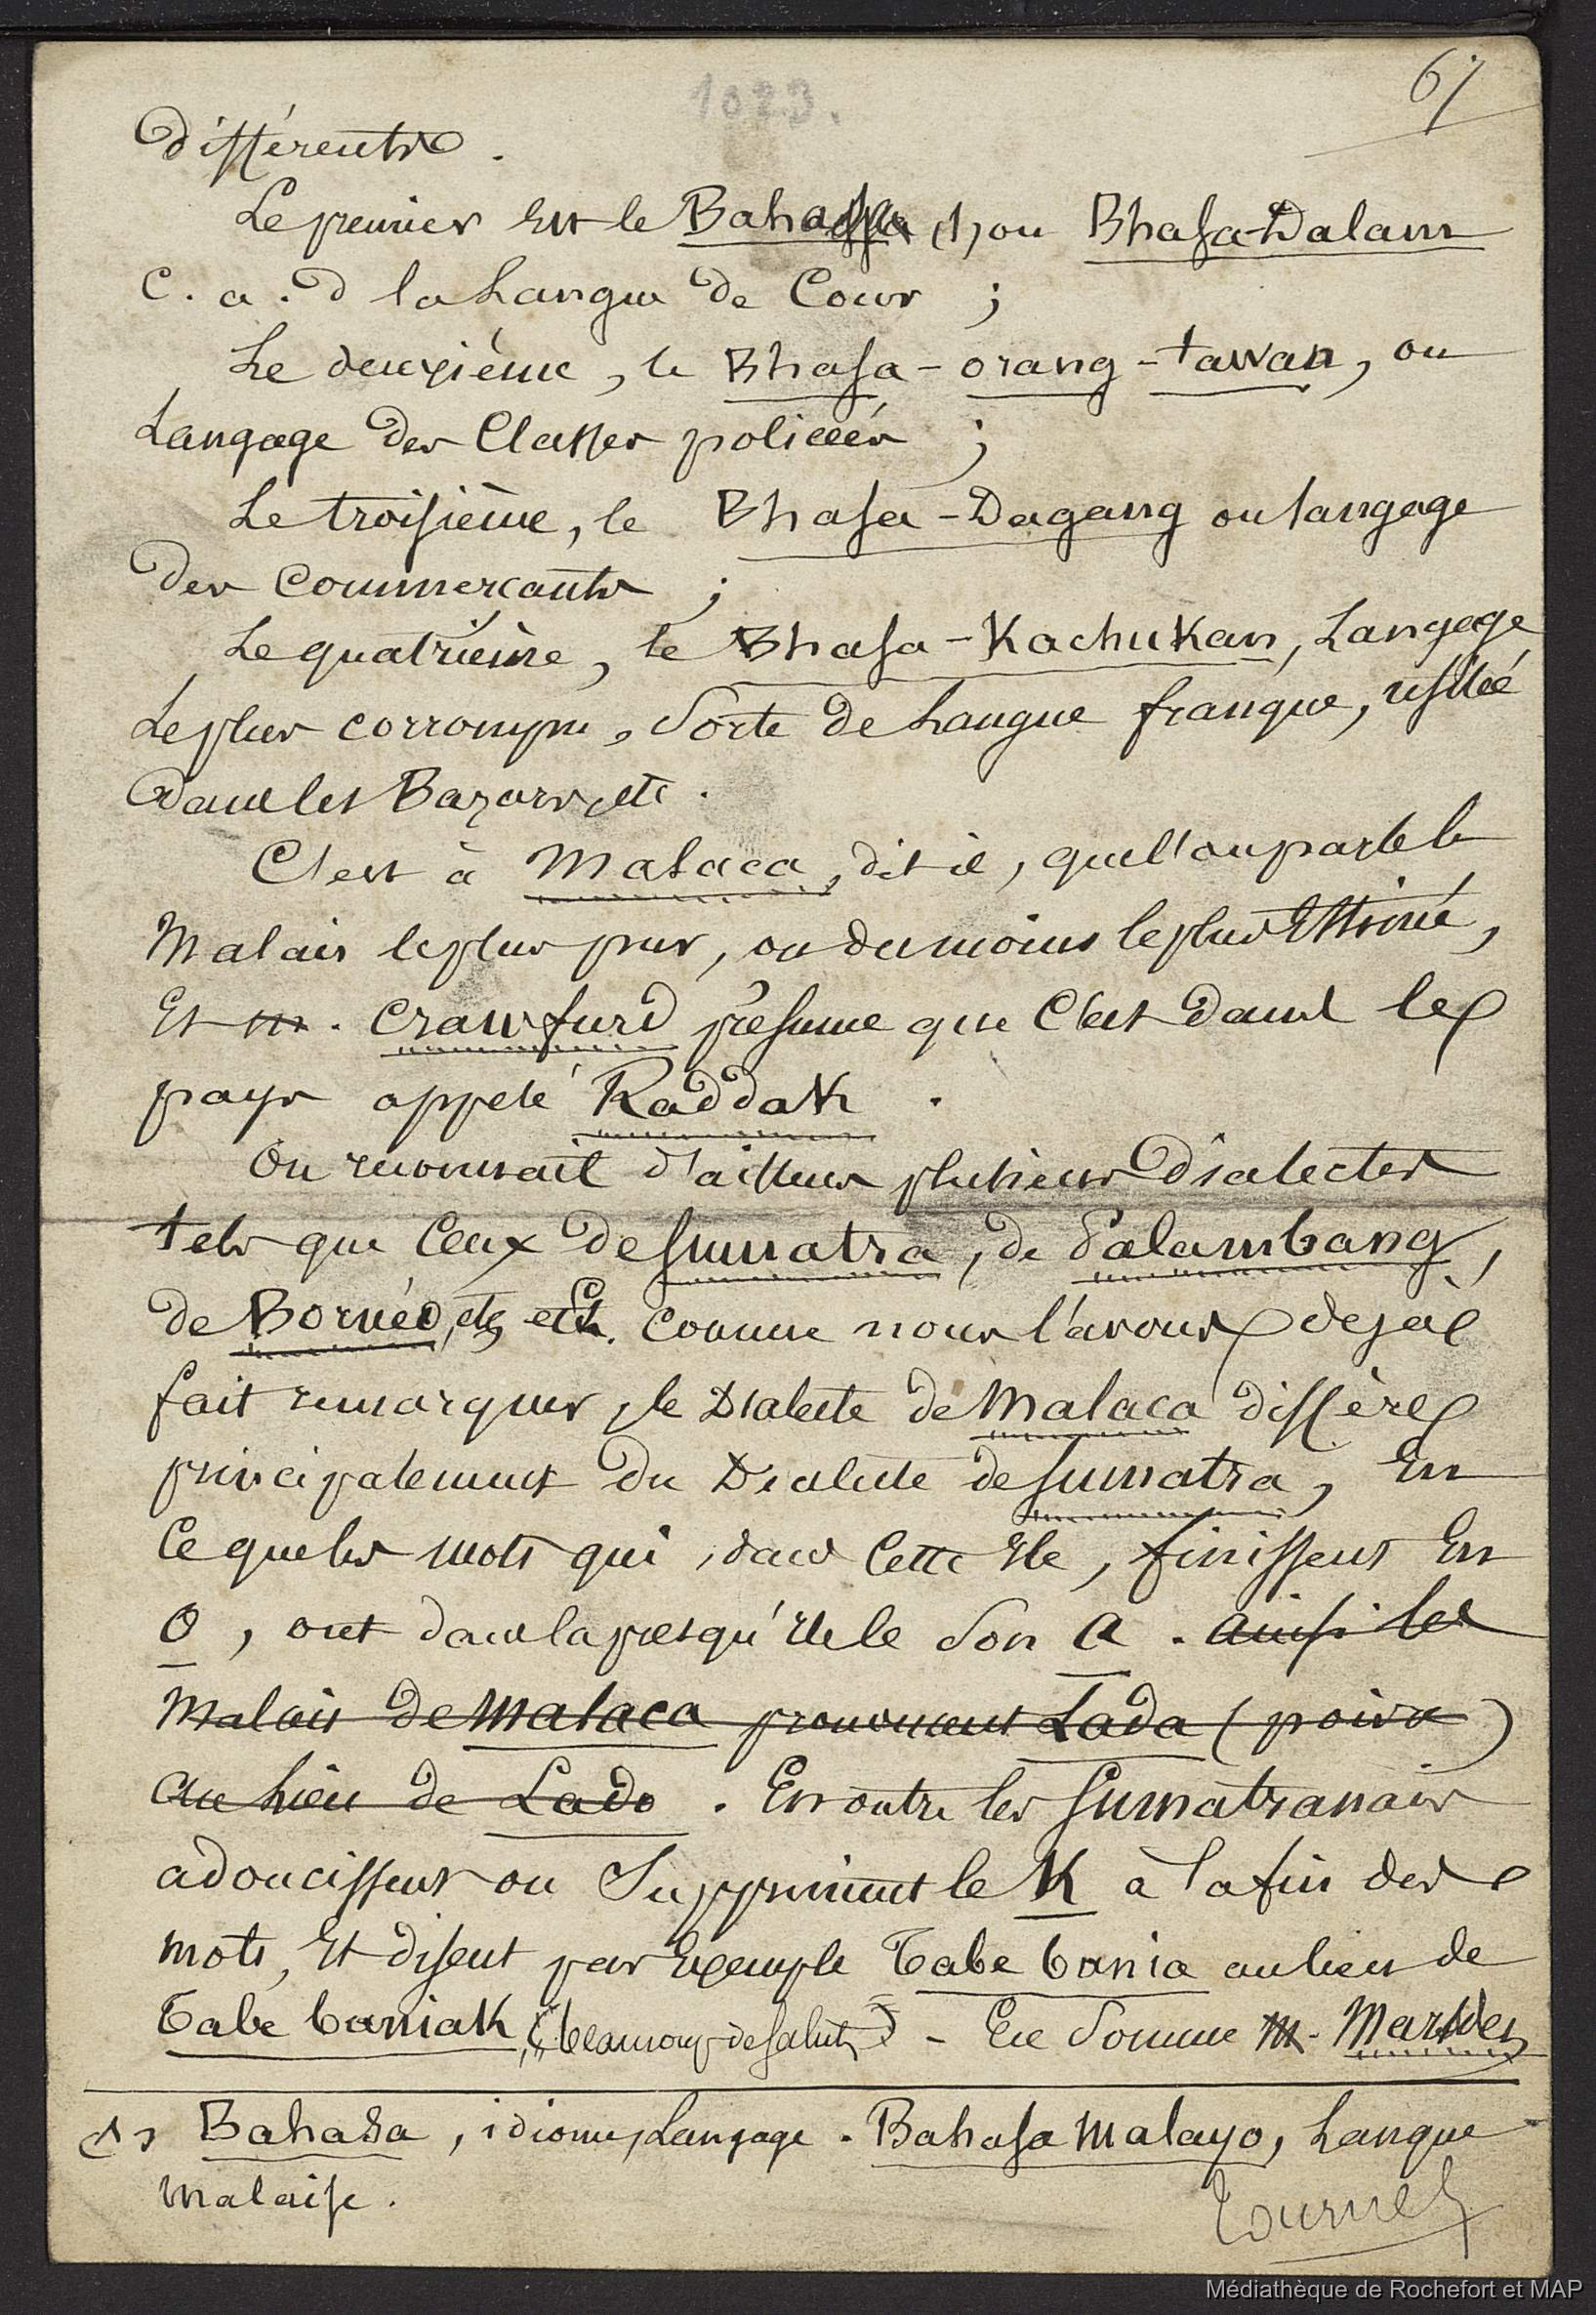 1023.
67
différents.
Le premier est le Bahassa (1) ou Bhasa-Dalam
C. a. d la Langue de Cour ;
Le deuxième, le Bhasa-orang-tawan, ou
Langage des Classes policées ;
Le troisième, le Bhasa-Dagang ou langage
des Commerçants ;
Le quatrième, le Bhasa-Kachukan, Langage
Le plus corrompu, Sorte de Langue franque, usitée
dans les Bazars, etc.
C'est à Malaca, dit-il, que l'on parle le
Malais le plus pur, ou du moins le plus Estimé,
Et m. Crawfurd présume que C'est dans le
pays appelé Raddak.
On reconnait d'ailleurs plusieurs Dialectes
tels que Ceux de Sumatra, de Palambang,
de Bornéo, etc. Comme nous l'avons dejà
fait remarquer, le Dialecte de Malaca diffère
principalement du Dialecte de Sumatra, En
Ce que les mots qui, dans Cette Ile, finissent En
O, ont dans la presqu'Ile le Son A. Ainsi les
Malais de Malaca prononcent Lada (poivre)
Au Lieu de Lado. En outre les Sumatranais
adoucissent ou Suppriment le K à la fin des
mots, Et disent par Exemple Tabe bania au lieu de
Tabe baniak, (beaucoup de saluts) - En Somme M. Marsden
(1) Bahasa, idiome, Langage. Bahasa Malayo, Langue
malaise.
Tournez
Médiathèque de Rochefort et MAP